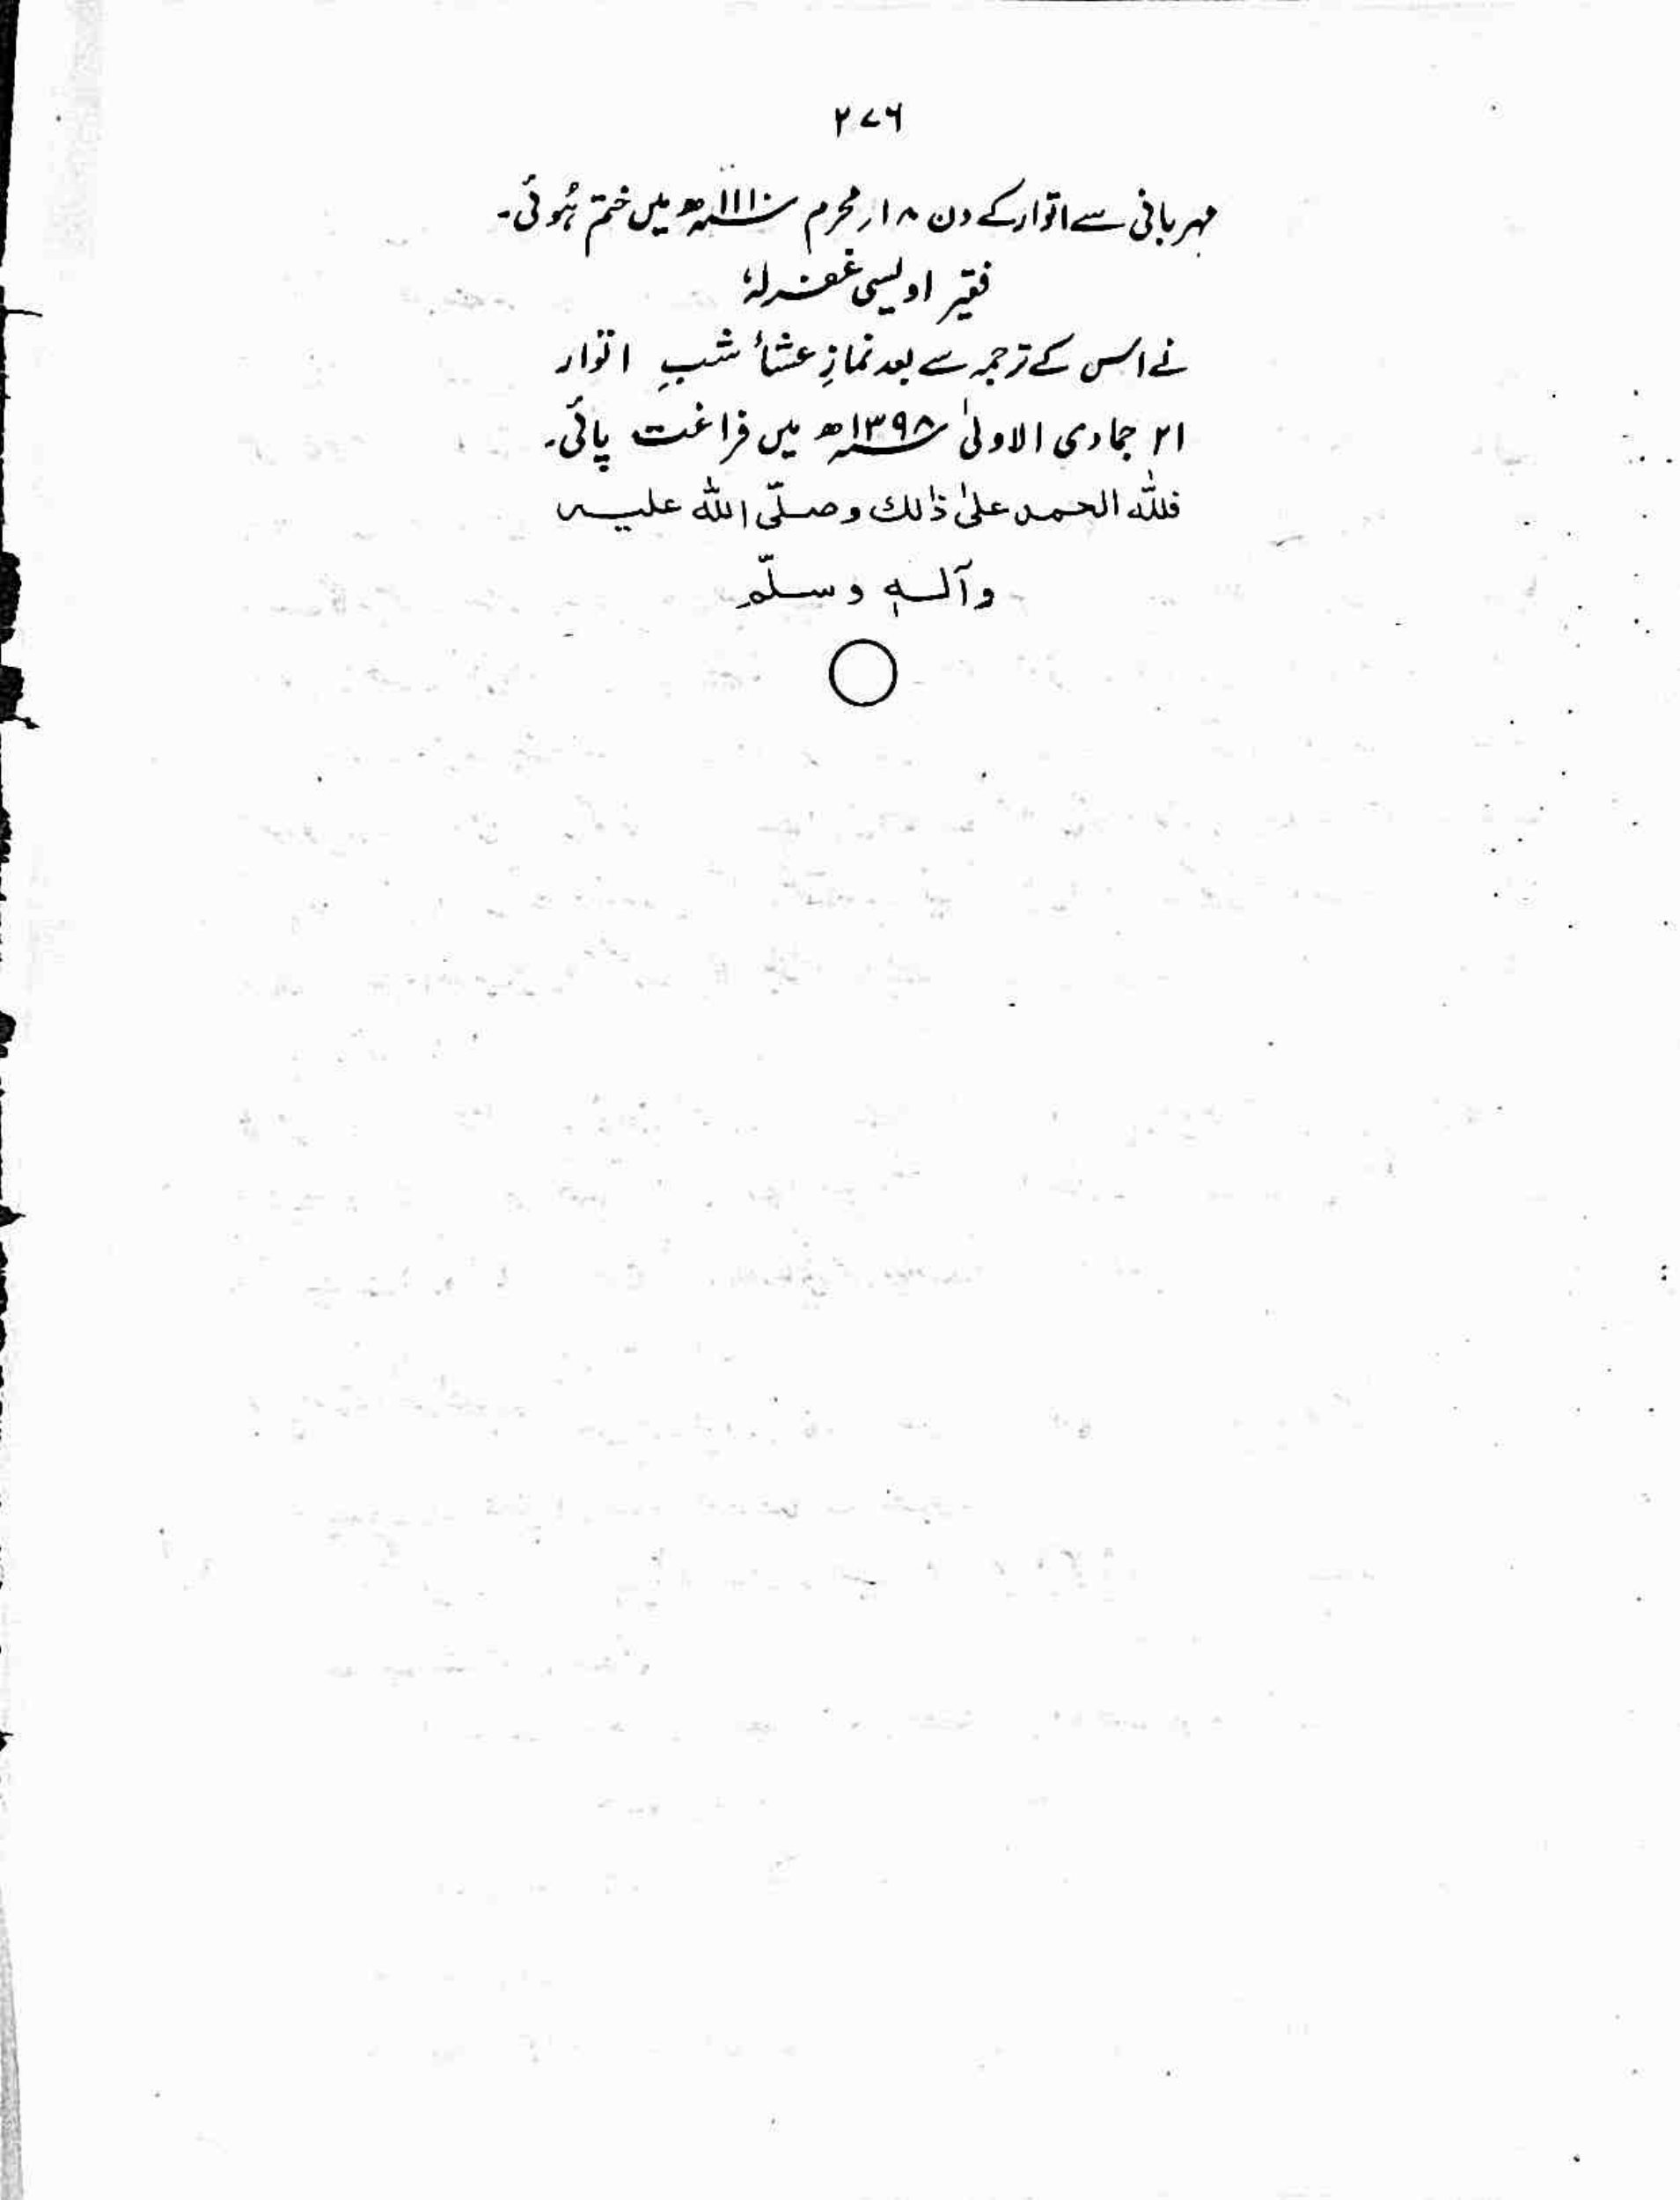 ۲۷۶
مہربانی سے اتوار کے دن ۱۸ محرم ۱۱۱۰ھ میں ختم ہُوئی۔
فقیر اویسی غفرلہٗ
نے اس کے ترجمہ سے بعد نمازِ عشاءٔ شبِ اتوار
۲۱ جمادی الاولیٰ ۱۳۹۸ھ میں فراغت پائی۔
فللّٰہ الحمد علیٰ ذٰلك وصلّی اللّٰہ علیہ
وآلہٖ وسلّم